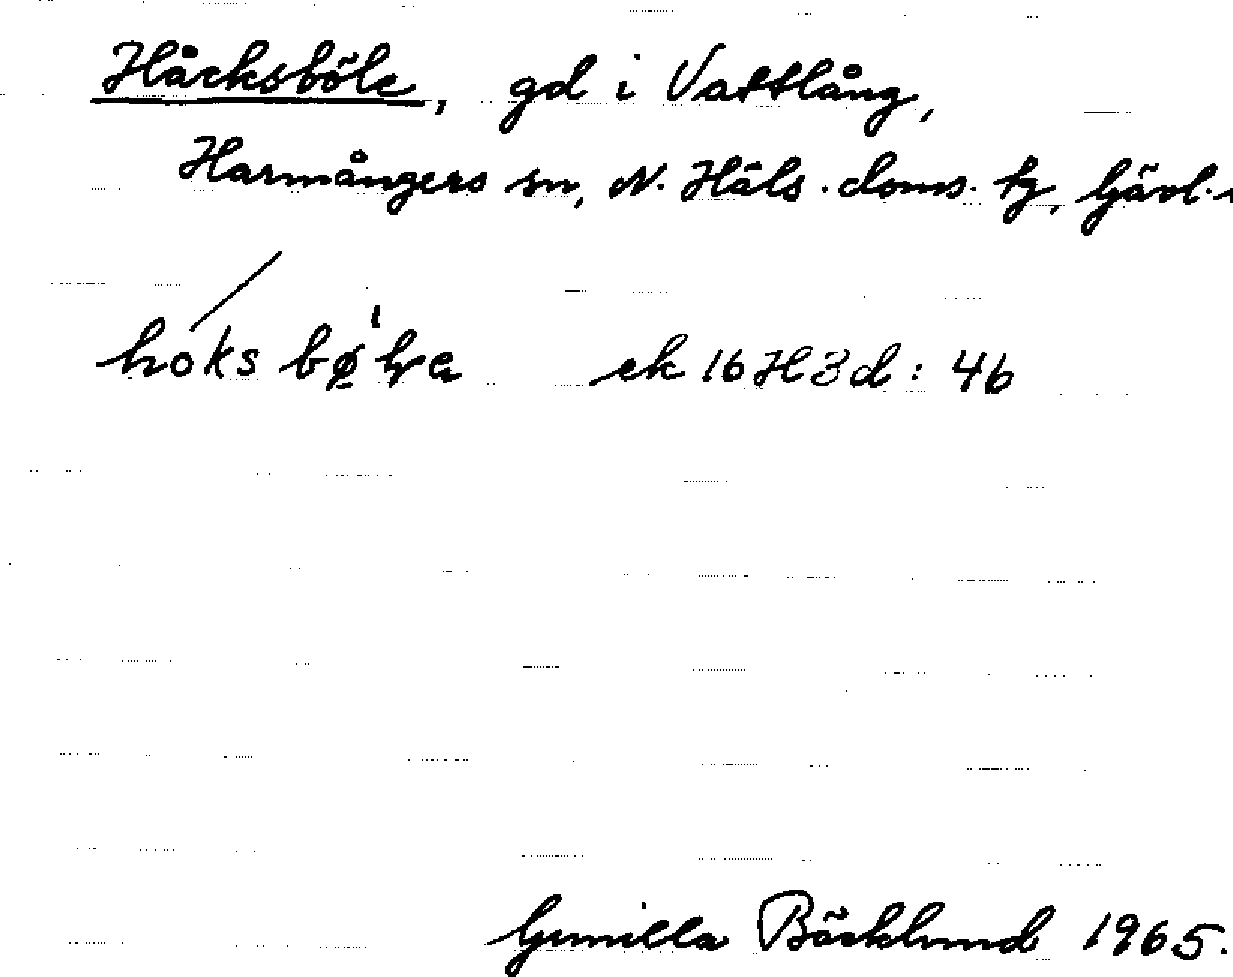 Håcksböle, gd i Vattlång,
Harmångers sn, N. Häls. doms. tg, Gävl.
ek 16H3d: 46
Gunilla Bäcklund 1965.